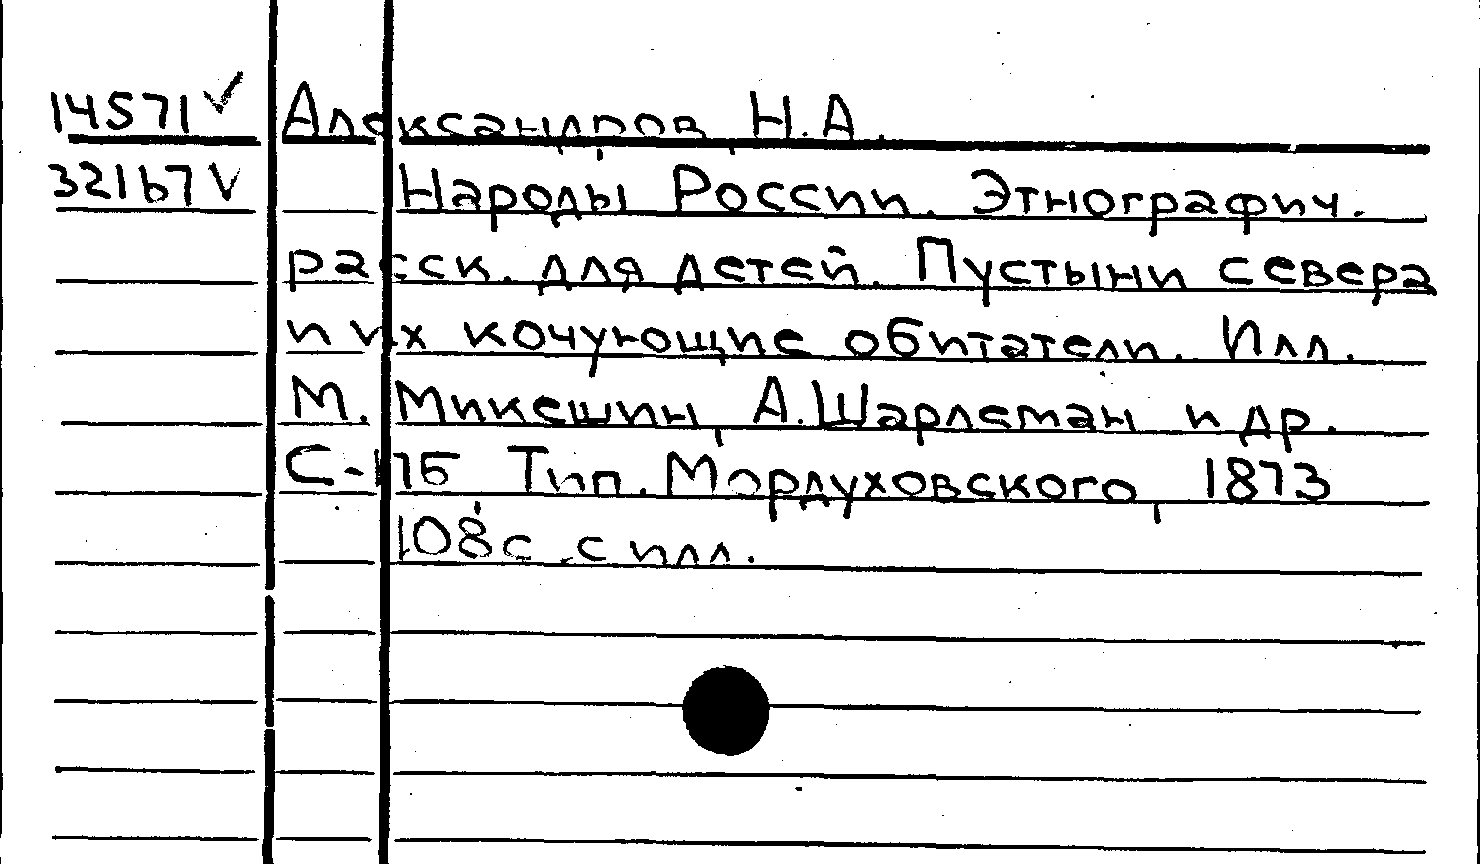 14571 ✓ Александров, Н.А.
32167 V Народы России. Этнографич.
расск. для детей. Пустыни севера
и их кочующие обитатели. Илл.
М. Микешин, А. Шарлеман и др.
С-ПБ, Тип. Мордуховского, 1873
108 с. с илл.